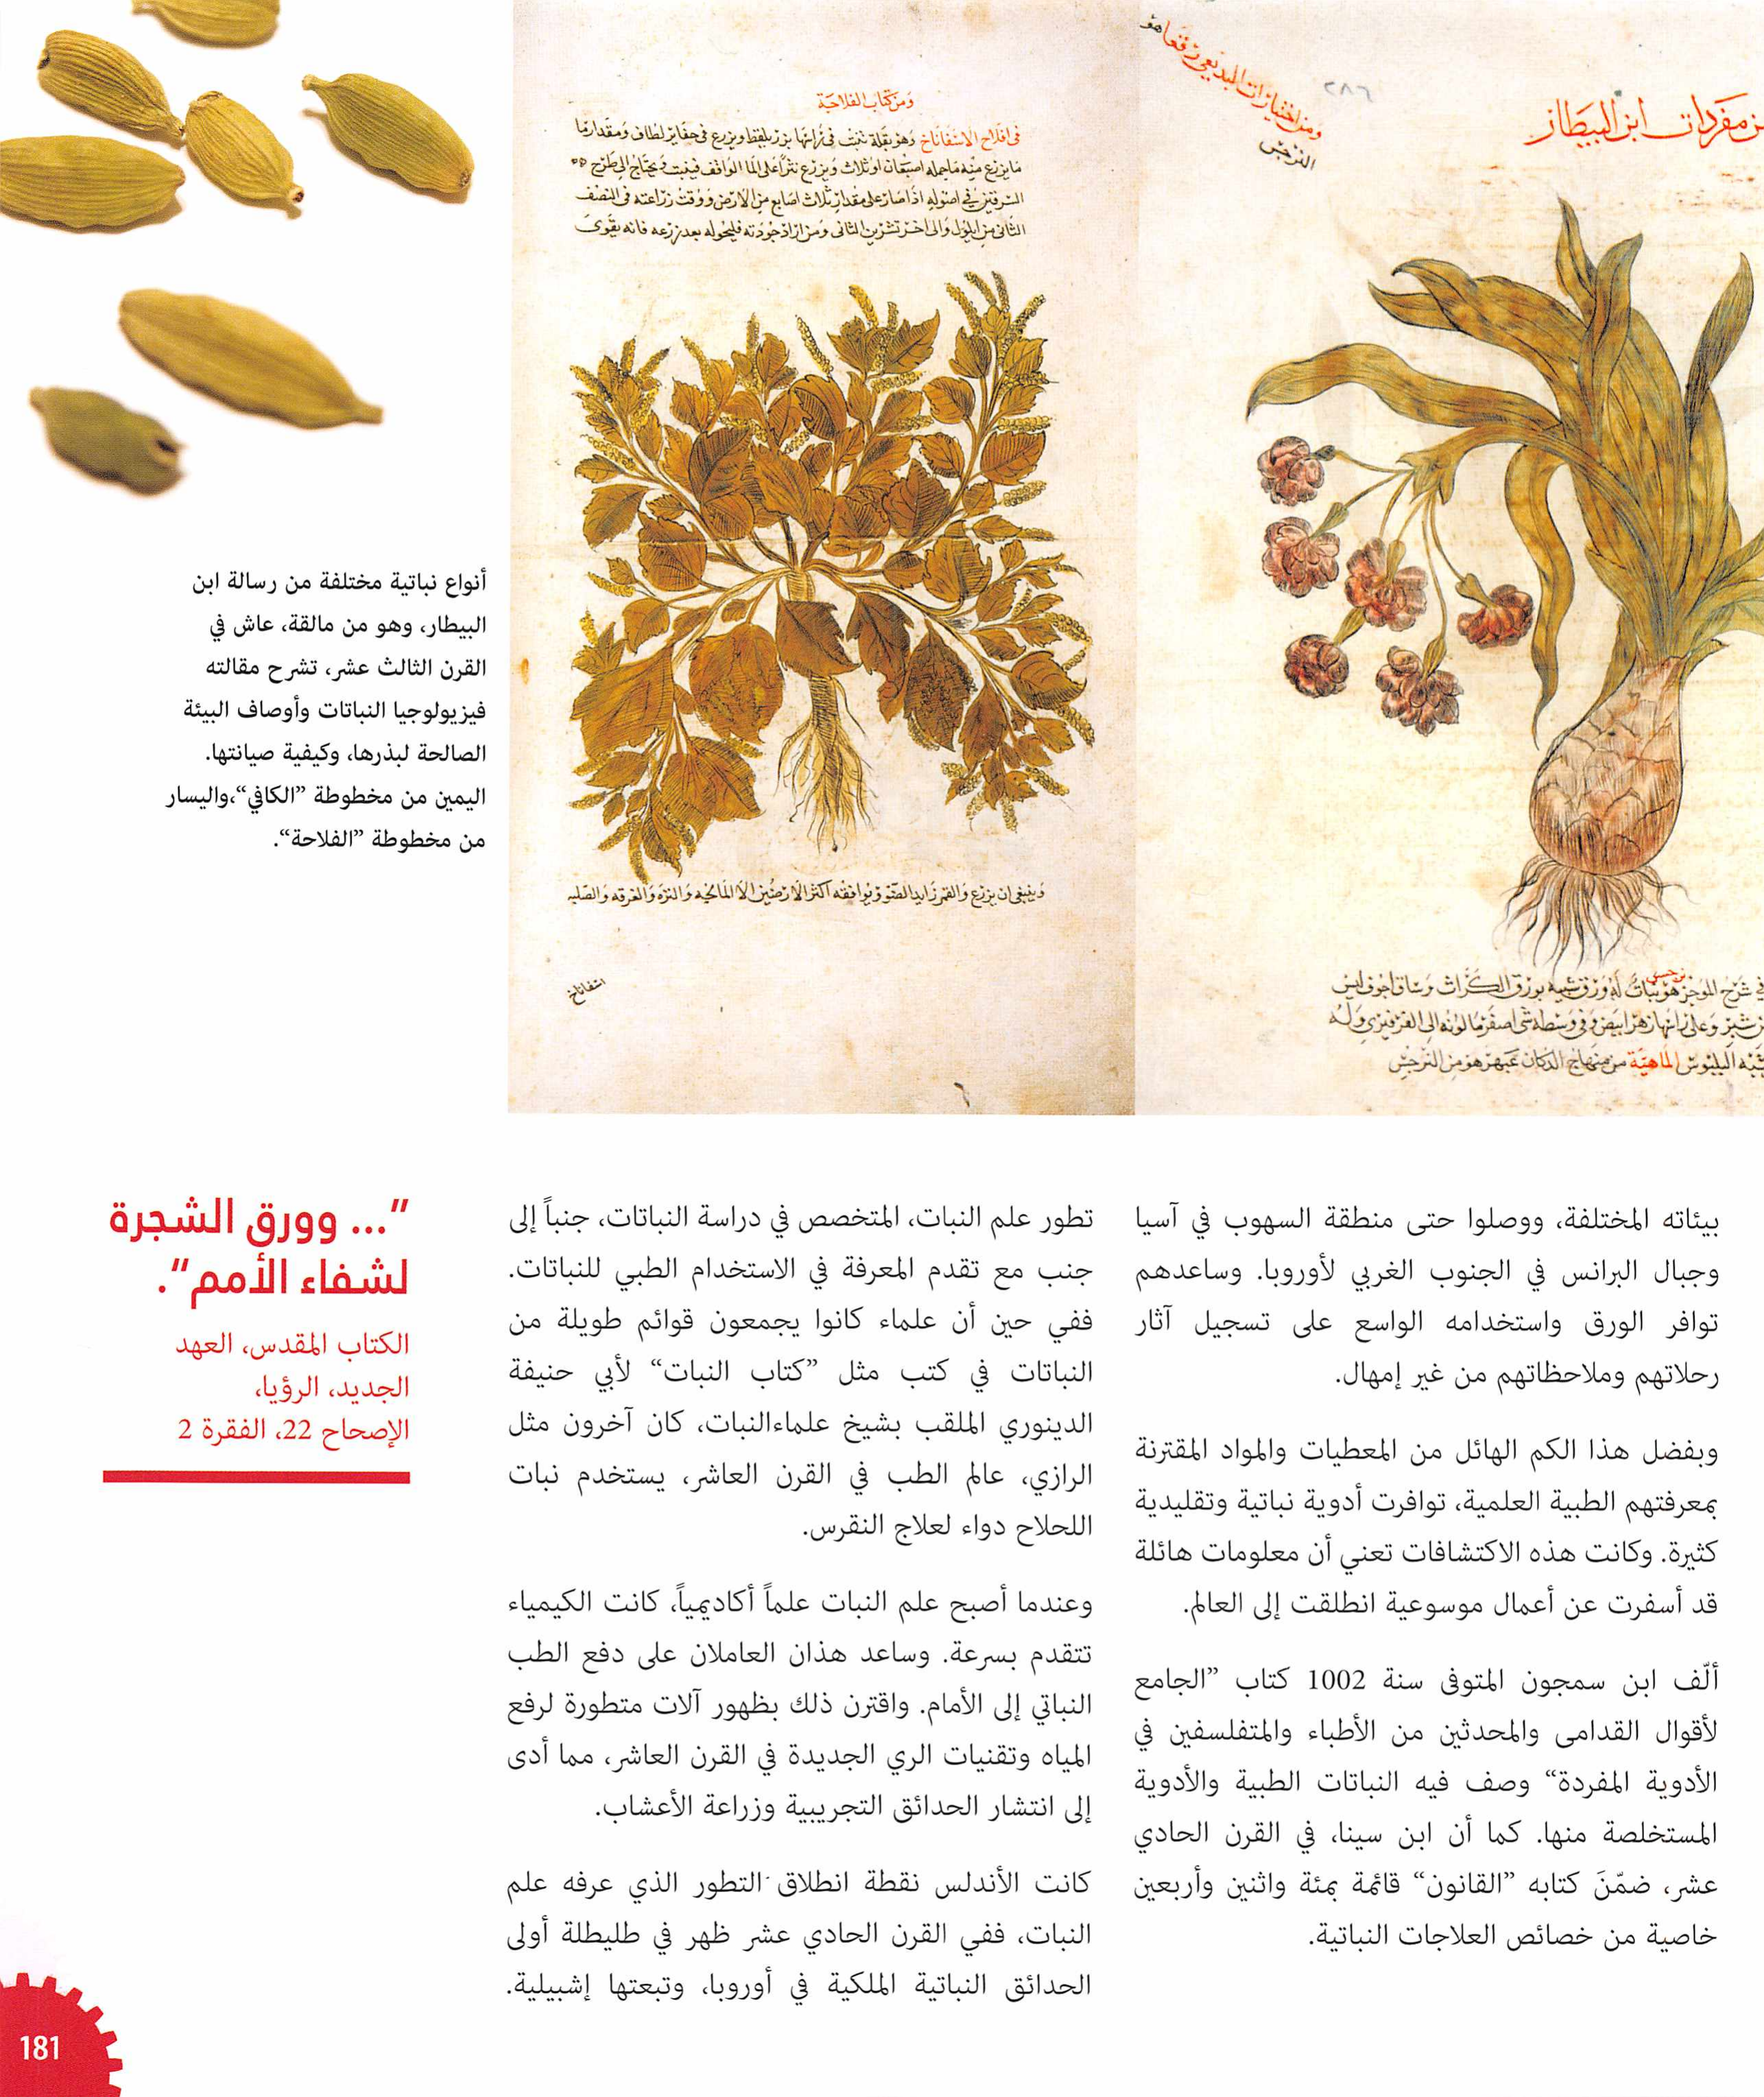 ومن كتاب الفلاحة
في افلاح الاسفاناخ وهو بقلة تنبت في
الثاني من ايلول والى اخر تشرين الثاني ومن اراد جودته فليحوله بعد زرعه فانه يقوى
وينبغي ان يزرع والقمر زايد الضو ويوافقه اكثر الارضين الا المالحه والنزه والغرقه والصلبه
اسفاناخ
٢٨٦
مفردات ابن البيطار
النرجس
في شرح الموجز هو نبات له ورق شبيه بورق الكراث وساق اجوف ليس
الماهية من منهاج الدكان عبهر هو من النرجس
أنواع نباتية مختلفة من رسالة ابن
البيطار، وهو من مالقة، عاش في
القرن الثالث عشر، تشرح مقالته
فيزيولوجيا النباتات وأوصاف البيئة
الصالحة لبذرها، وكيفية صيانتها.
اليمين من مخطوطة ”الكافي“،واليسار
من مخطوطة ”الفلاحة“.
بيئاته المختلفة، ووصلوا حتى منطقة السهوب في آسيا
وجبال البرانس في الجنوب الغربي لأوروبا. وساعدهم
توافر الورق واستخدامه الواسع على تسجيل آثار
رحلاتهم وملاحظاتهم من غير إمهال.
وبفضل هذا الكم الهائل من المعطيات والمواد المقترنة
بمعرفتهم الطبية العلمية، توافرت أدوية نباتية وتقليدية
كثيرة. وكانت هذه الاكتشافات تعني أن معلومات هائلة
قد أسفرت عن أعمال موسوعية انطلقت إلى العالم.
ألّف ابن سمجون المتوفى سنة 1002 كتاب ”الجامع
لأقوال القدامى والمحدثين من الأطباء والمتفلسفين في
الأدوية المفردة“ وصف فيه النباتات الطبية والأدوية
المستخلصة منها. كما أن ابن سينا، في القرن الحادي
عشر، ضمّنَ كتابه ”القانون“ قائمة بمئة واثنين وأربعين
خاصية من خصائص العلاجات النباتية.
تطور علم النبات، المتخصص في دراسة النباتات، جنباً إلى
جنب مع تقدم المعرفة في الاستخدام الطبي للنباتات.
ففي حين أن علماء كانوا يجمعون قوائم طويلة من
النباتات في كتب مثل ”كتاب النبات“ لأبي حنيفة
الدينوري الملقب بشيخ علماءالنبات، كان آخرون مثل
الرازي، عالم الطب في القرن العاشر، يستخدم نبات
اللحلاح دواء لعلاج النقرس.
وعندما أصبح علم النبات علماً أكاديمياً، كانت الكيمياء
تتقدم بسرعة. وساعد هذان العاملان على دفع الطب
النباتي إلى الأمام. واقترن ذلك بظهور آلات متطورة لرفع
المياه وتقنيات الري الجديدة في القرن العاشر، مما أدى
إلى انتشار الحدائق التجريبية وزراعة الأعشاب.
كانت الأندلس نقطة انطلاق التطور الذي عرفه علم
النبات، ففي القرن الحادي عشر ظهر في طليطلة أولى
الحدائق النباتية الملكية في أوروبا، وتبعتها إشبيلية.
”... وورق الشجرة
لشفاء الأمم“.
الكتاب المقدس، العهد
الجديد، الرؤيا،
الإصحاح 22، الفقرة 2
181